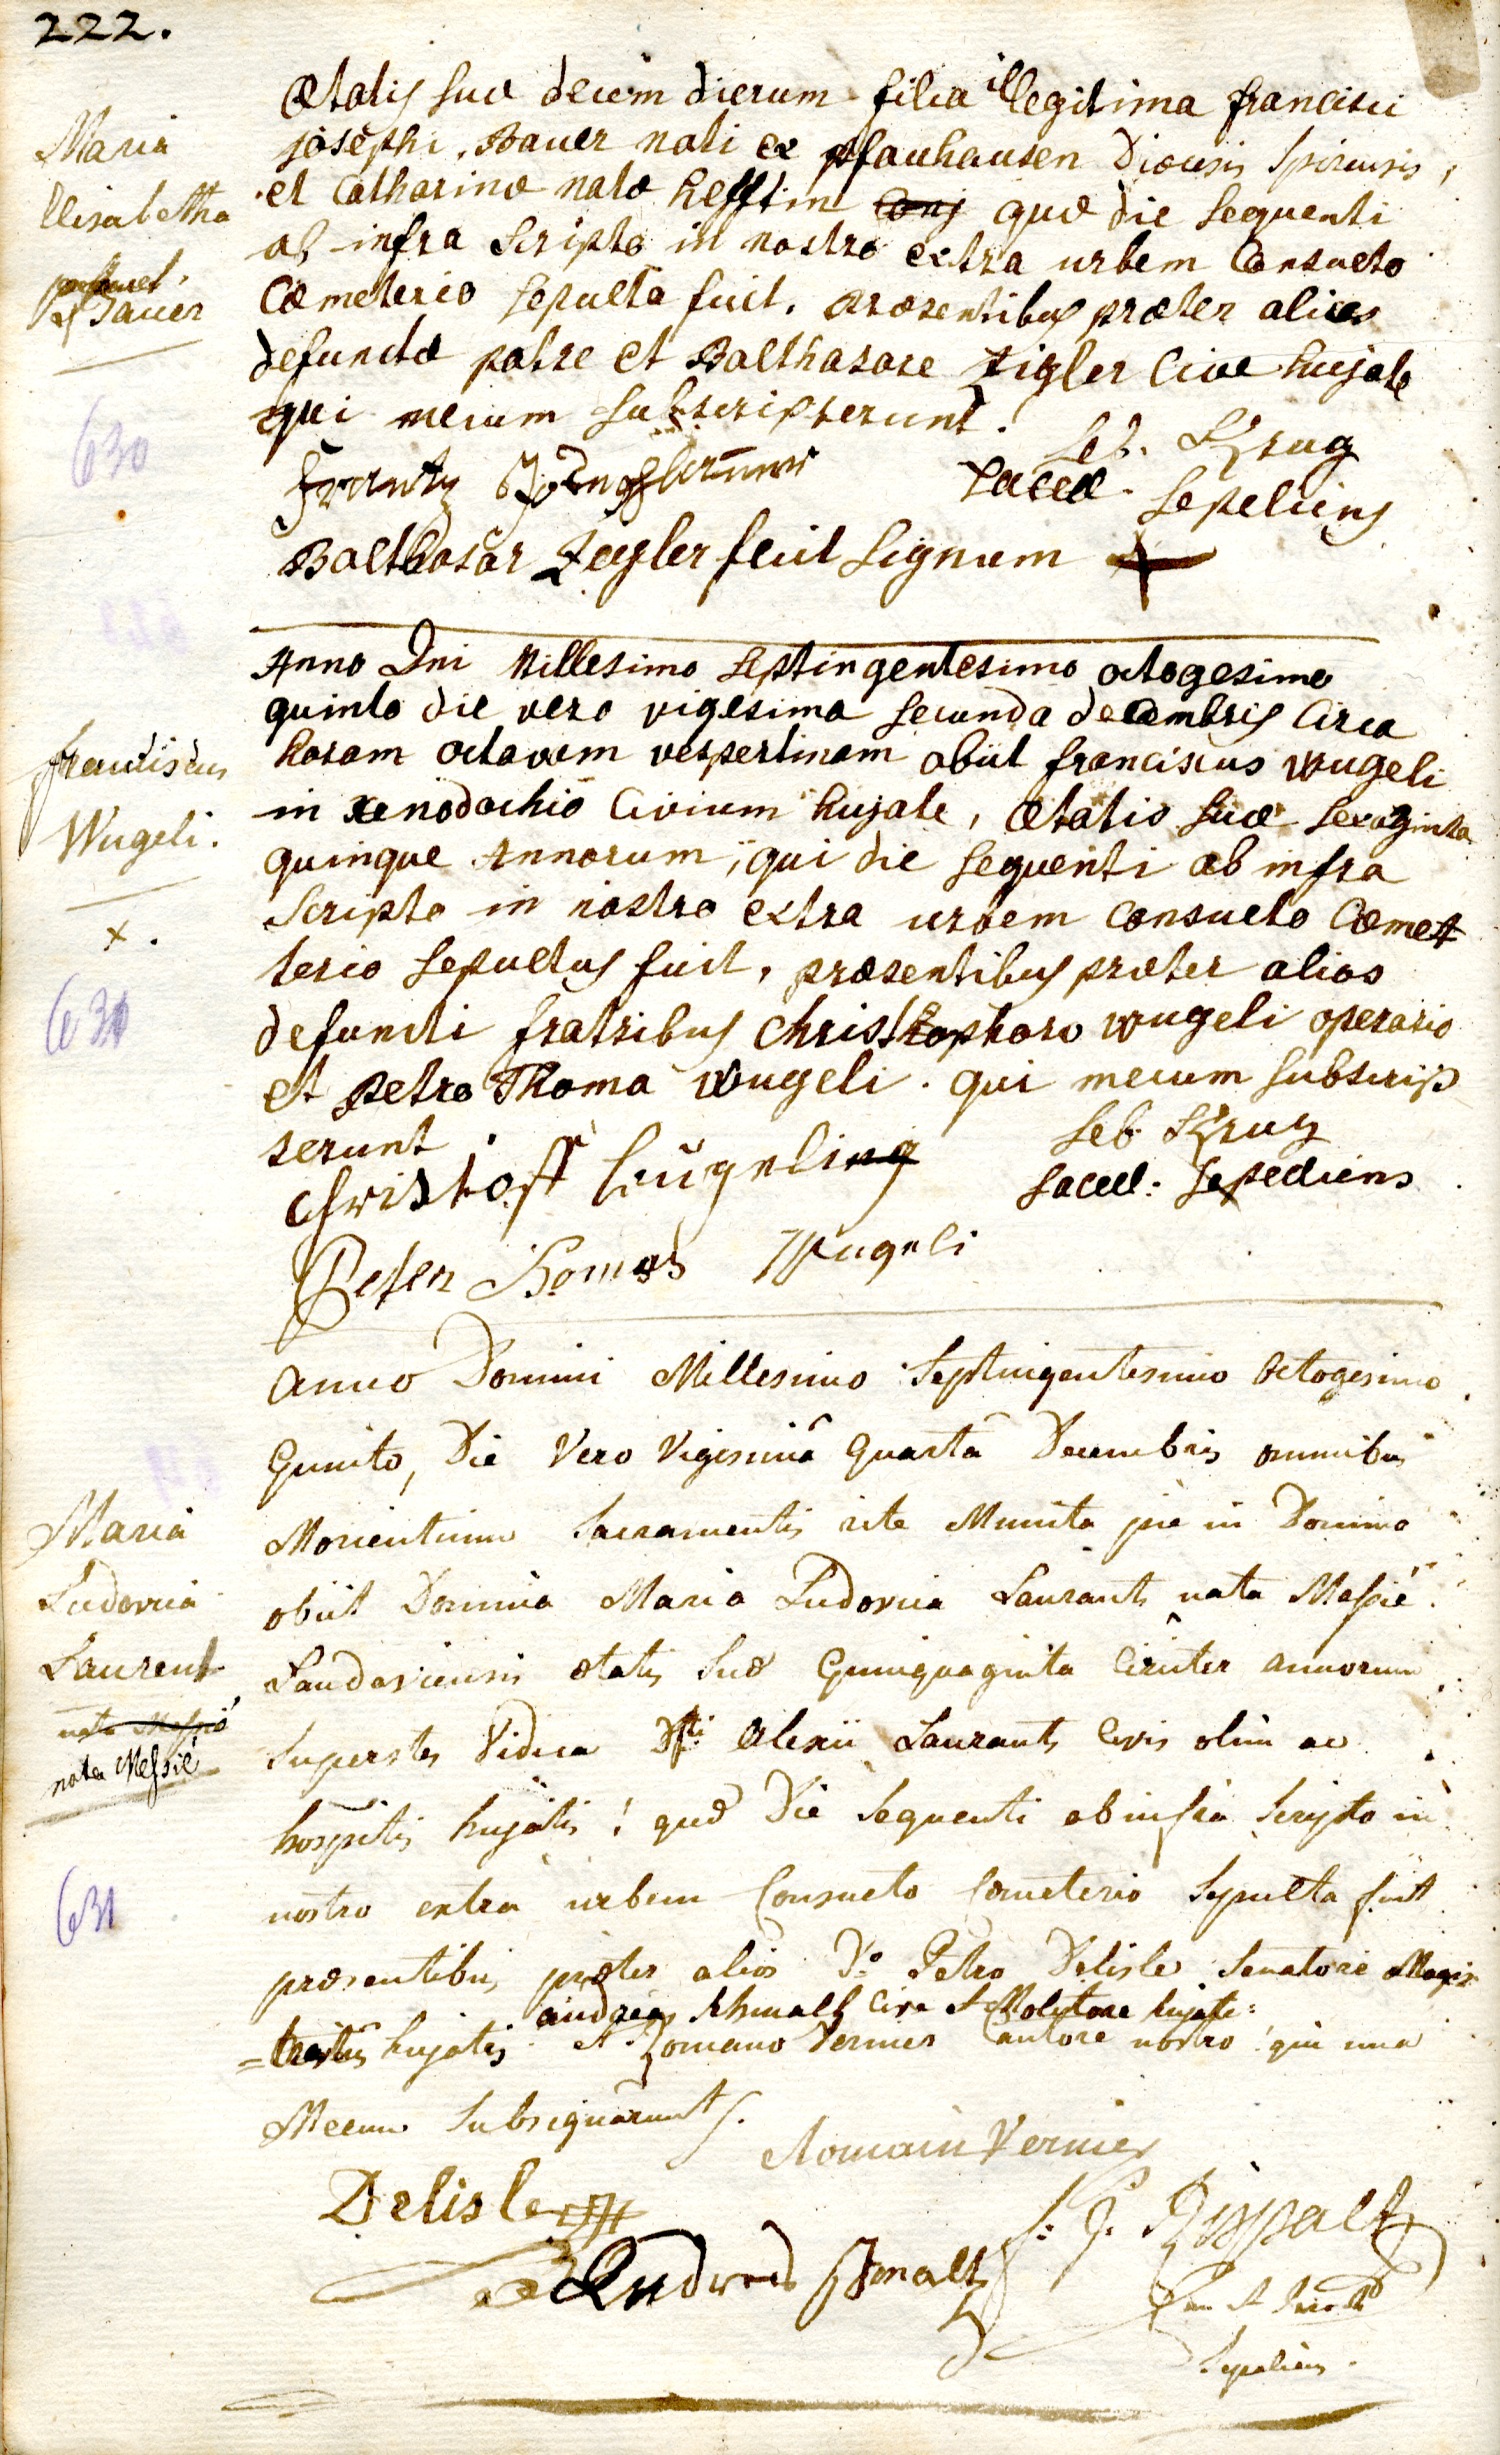 222.
ætatis suæ decem dierum filia illegitima francisci
josephi Bauer nati ex pfauhausen Diœcesis Spirensis,
et Catharinæ natæ hefftin Conj quæ die sequenti
ab infra scripto in nostro extra urbem Consueto
Cœmeterio sepulta fuit. præsentibus præter alios
defunctæ patre et Balthasare Zigler Cive hujate
qui mecum subscripserunt.
Maria
Elisabetha
Bauer
630
Seb. Krug
Sacell. Sepeliens
Frantz
Balthasar Zegler fecit Signum +
Anno Dni Millesimo septingentesimo octogesimo
quinto die vero vigesima secunda decembris Circa
horam octavam vespertinam obiit franciscus wugeli
in Xenodochio Civium hujate, ætatis suæ sexaginta
quinque Annorum, qui die sequenti ab infra
Scripto in nostro extra urbem consueto Cœme
terio sepultus fuit, præsentibus præter alios
defuncti fratribus Christhophoro wugeli operario
et petro Thoma wugeli. qui mecum subscrip
serunt.
franciscus
Wugeli.
x.
631
Seb Krug
Sacell: Sepeliens
Christoff Wügeling
Peter Thomas Wugeli
Anno Domini Millesimo Septuigentesimo Octogesimo
Quinto, Die Vero Vigesimâ Quartâ Decembris omnibus
Morientium Sacramentis rite Munita pie in Domino
obiit Domina Maria Ludovica Laurants nata Massié
Landaviensis ætatis suæ Quinquaginta Circiter annorum
Superstes Vidua Dfti Alexii Laurants Civis olim ac
hospitis hujatis! quæ Die Sequenti ab infra Scripto in
nostro extra urbem Consueto Cœmeterio Sepulta fuit
præsentibus præter alios Do Petro Delisle Senatore Magis
andreas Schmalz Cive et Molitore hujate:
=tratûs hujatis et Romano Vernier Cantore nostro qui una
Mecum Subsignârunt.
Maria
Ludovica
Laurent
nata Massié
nata Messié
631
Romain Vernier
Delisle
Andreas Schmaltz
Sepeliens.